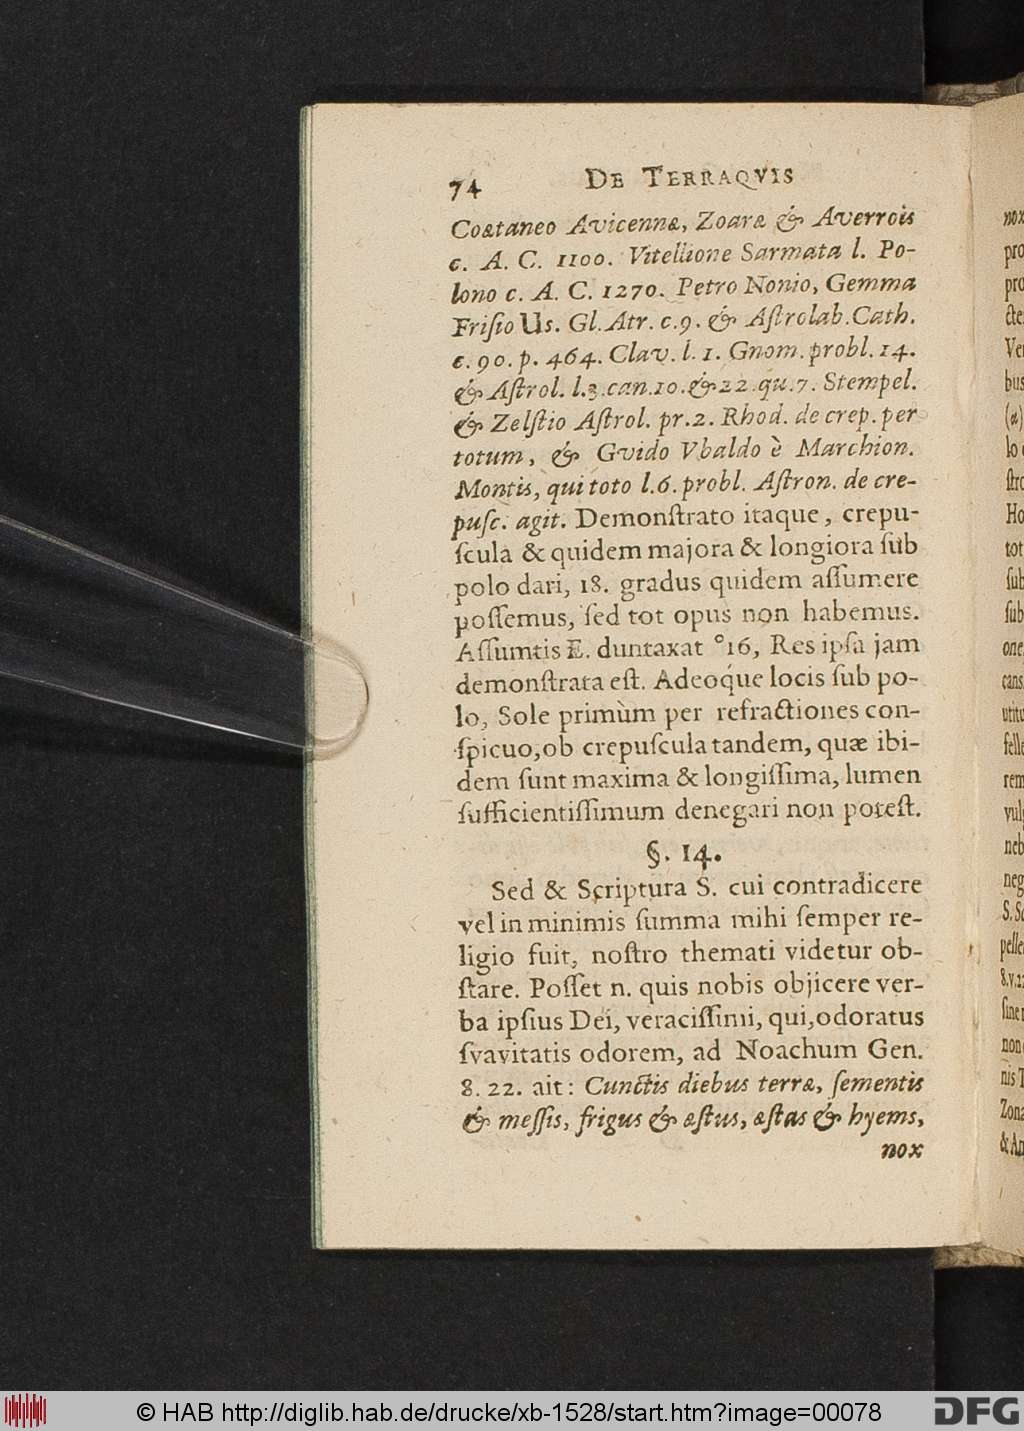 74 DE TERRAQVIS
Coætaneo Avicennæ, Zoaræ & Averrois
c. A. C. 1100. Vitellione Sarmata l. Po-
lono c. A. C. 1270. Petro Nonio, Gemma
Friſio Us. Gl. Atr. c. 9. & Aſtrolab. Cath.
c. 90. p. 464. Clav. l. 1. Gnom. probl. 14.
& Aſtrol. l. 3. can. 10. & 22. qu. 7. Stempel.
& Zelſtio Aſtrol. pr. 2. Rhod. de crep. per
totum, & Gvido Vbaldo è Marchion.
Montis, qui toto l. 6. probl. Aſtron. de cre-
puſc. agit. Demonſtrato itaque, crepu-
ſcula & quidem majora & longiora ſub
polo dari, 18. gradus quidem aſſumere
poſſemus, ſed tot opus non habemus.
Aſſumtis E. duntaxat °16, Res ipſa jam
demonſtrata eſt. Adeóque locis ſub po-
lo, Sole primùm per refractiones con-
ſpicuo, ob crepuſcula tandem, quæ ibi-
dem ſunt maxima & longiſſima, lumen
ſufficientiſſimum denegari non poteſt.
§. 14.
Sed & Scriptura S. cui contradicere
vel in minimis ſumma mihi ſemper re-
ligio fuit, noſtro themati videtur ob-
ſtare. Poſſet n. quis nobis objicere ver-
ba ipſius Dei, veraciſſimi, qui, odoratus
ſvavitatis odorem, ad Noachum Gen.
8. 22. ait: Cunctis diebus terræ, ſementis
& meſſis, frigus & æſtus, æſtas & hyems,
nox
nox
pro
pro
cte
Ve
bus
(a)
lo
ſtro
Ho
tot
ſub
ſub
one
cans
utitu
felle
rem
vul
neb
neg
S. Sc
pelle
8. v. 22
ſine
non
nis T
Zona
& An
© HAB http://diglib.hab.de/drucke/xb-1528/start.htm?image=00078
DFG